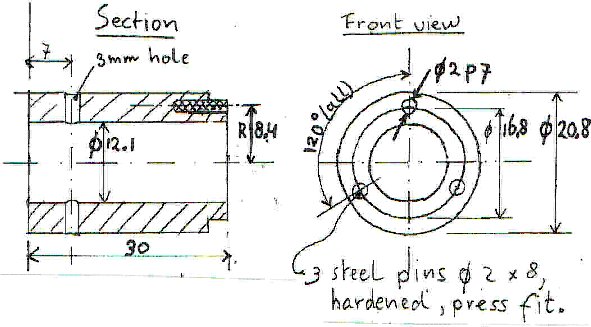 Section
Front view
7
3mm hole
ϕ2 P7
120° (all)
ϕ12.1
R 8,4
ϕ 16,8
ϕ 20,8
30
3 steel pins ϕ 2 x 8,
hardened, press fit.